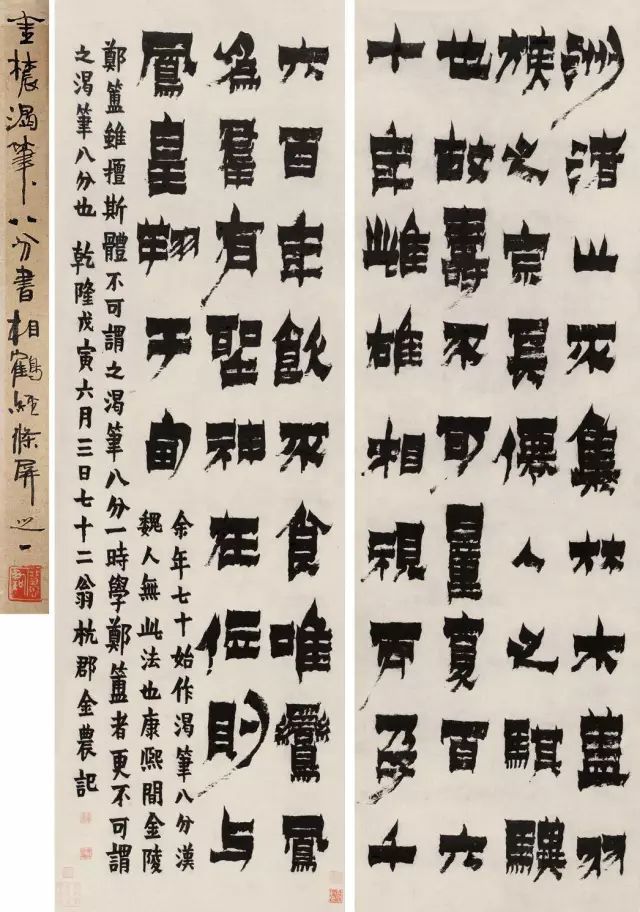 洲渚止不集林木盖羽
族之宗長僊人之騏驥
也故壽不可量夏百六
十年雌雄相視而孕千
六百年飲不食唯鸞鳳
為羣有聖神在位則与
鳳皇翔于甸
余年七十始作渴筆八分漢
魏人無此法也康熙間金陵
鄭簠雖擅斯體不可謂之渴筆八分一時學鄭簠者更不可謂
之渴筆八分也 乾隆戊寅六月三日七十二翁杭郡金農記
金農渴筆八分書相鶴經條屏之一